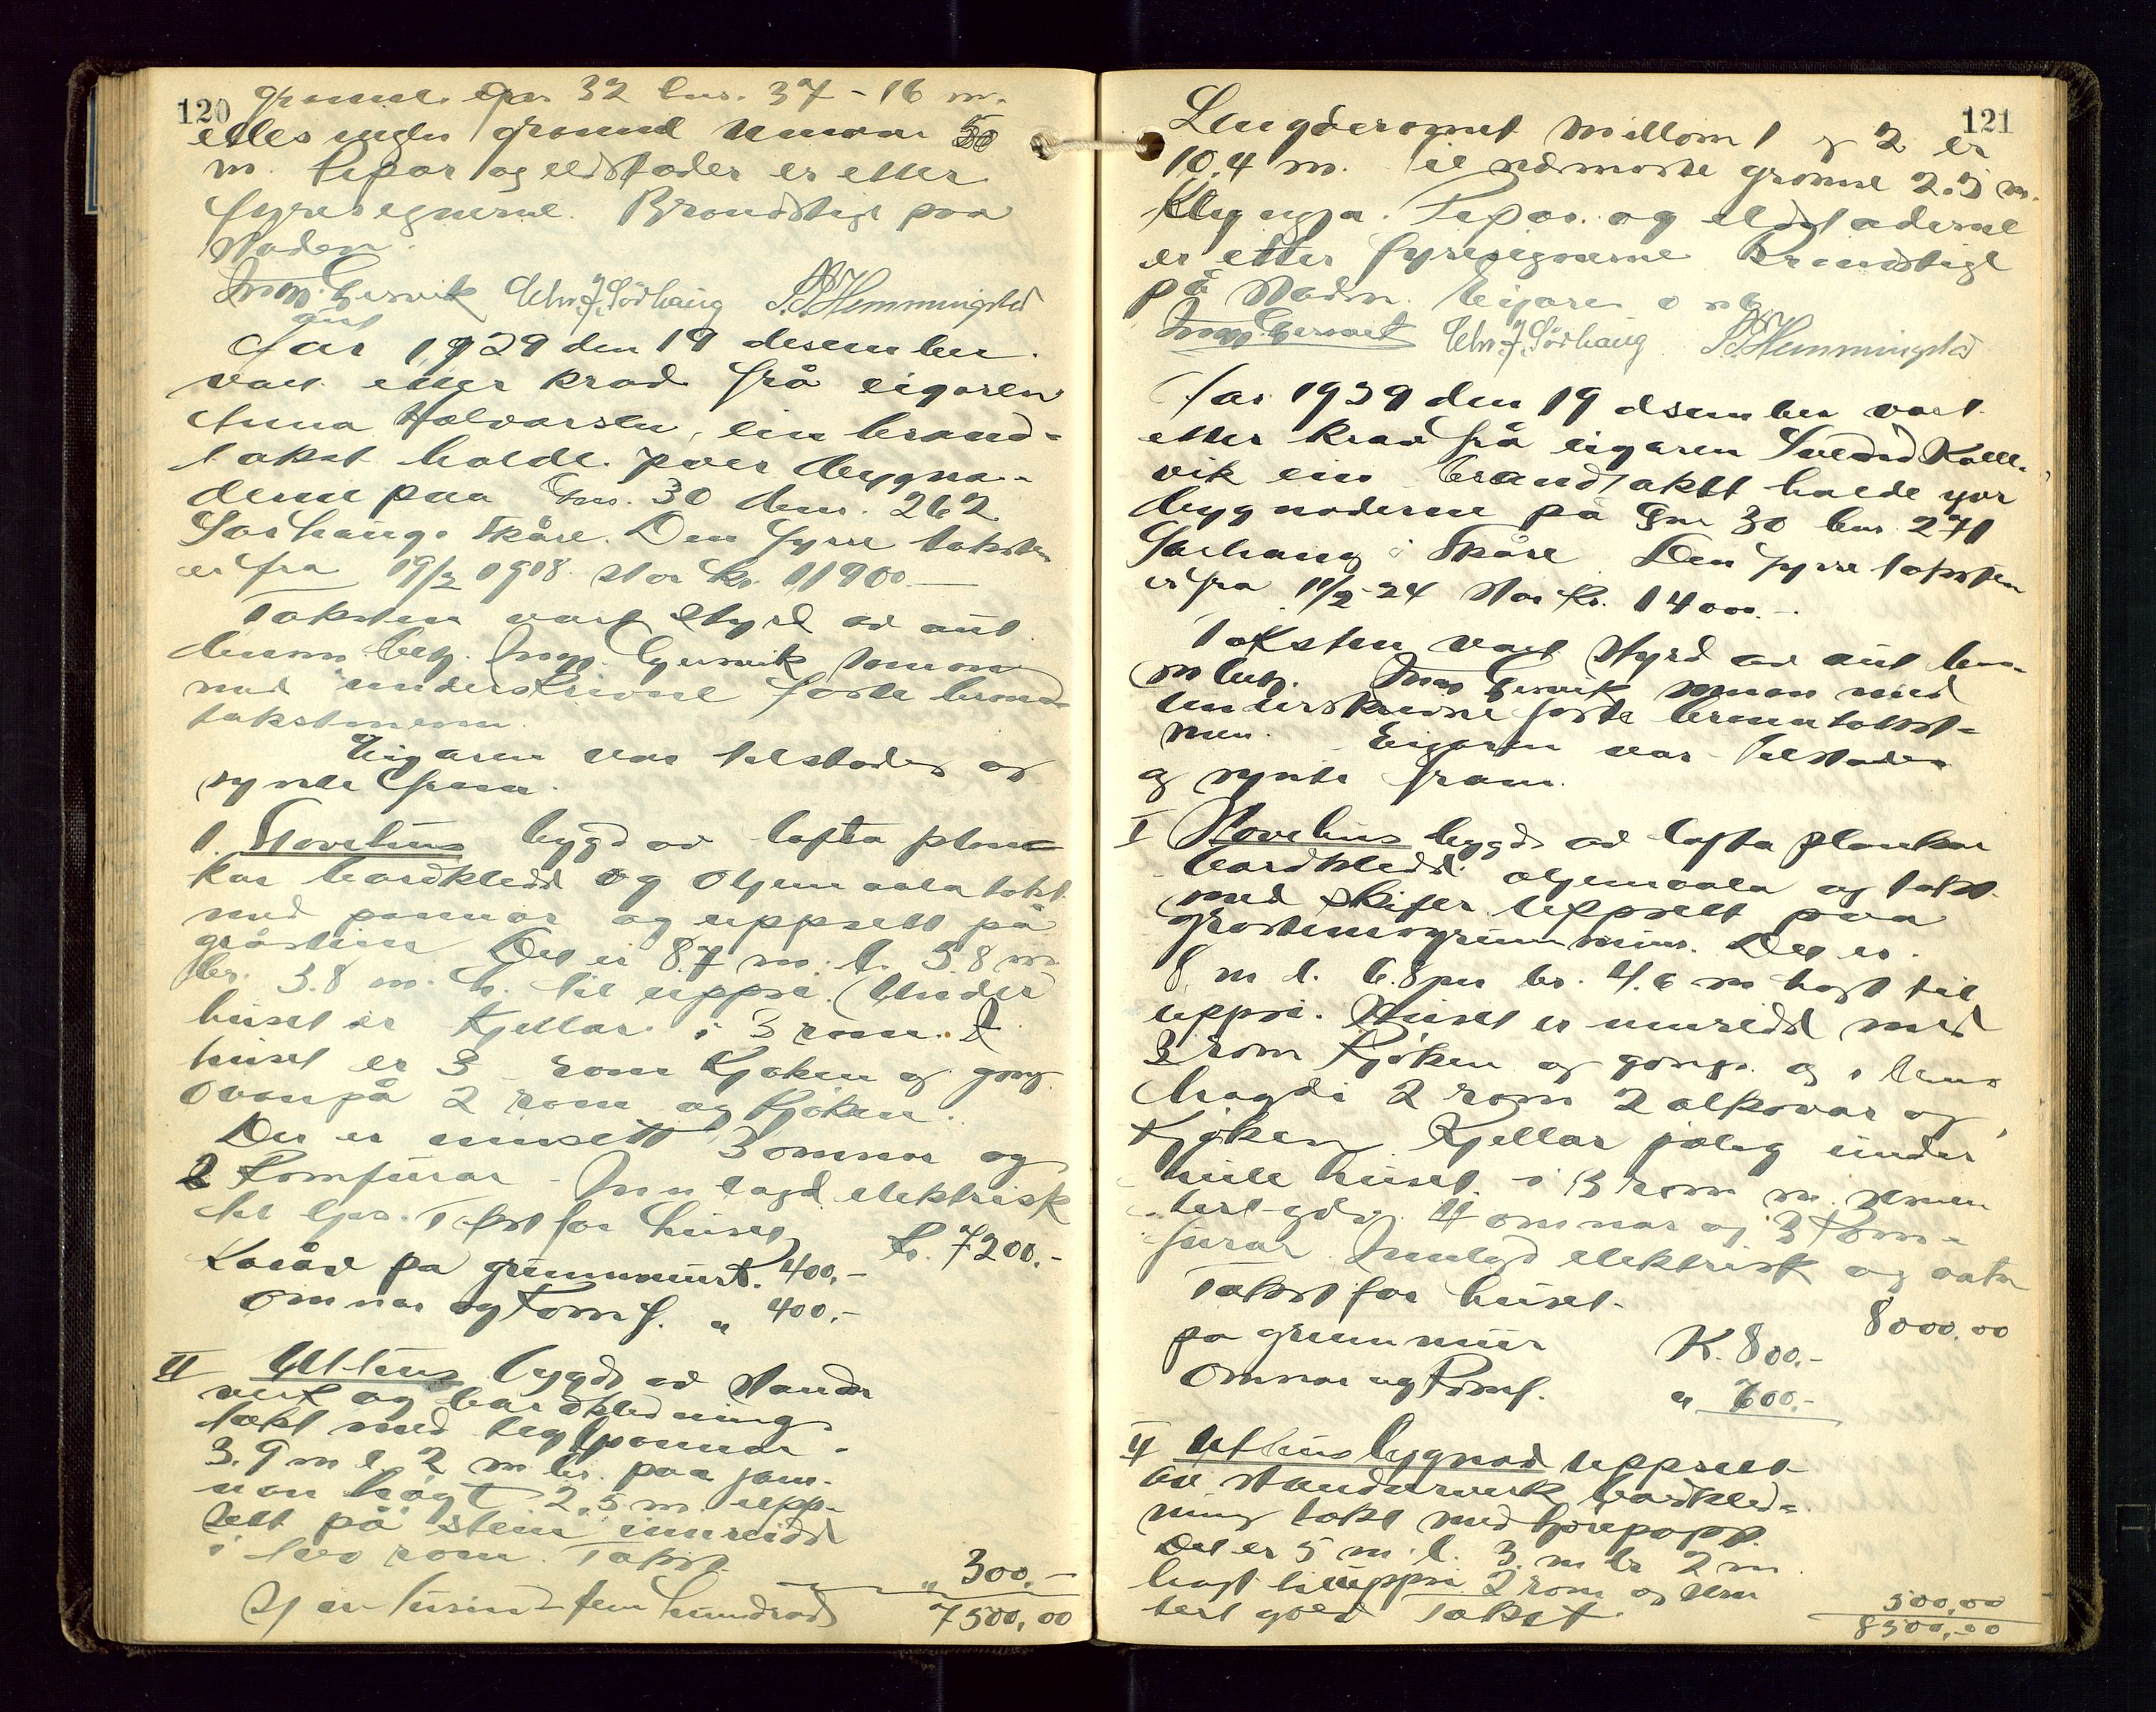 120
grannen gnr 32 bnr. 37 - 16 m.
elles ingen grannel 50
m. Pipor og eldstader er etter
fyresegnerne. Brandstige paa
staden.
Ingv. Gjesvik Chr. J. Sörhaug S. S. Hemmingstad
aut
Aar 1929 den 19 desember
vart etter krav frå eigaren
Anna Halvorsen, ein brand-
takst halde yver bygna-
dene paa Gnr. 30 bnr. 262
Sörhaug i Skåre. Den fyrre taksten
er fra 19/2 1918 stor kr. 11900.—
Taksten vart styrd av aut
brann. Ingv. Gjesvik saman
med underskrivne faste brand-
takstmenn.
Eigaren var tilstades og
synte fram.
1. Stovehus bygd av lafta plan
kar bordkledd og oljemaala tekt
med pannor og uppsett på
gråstein Det er 8.7 m. l. 5.8 m
br. 3.8 m. h. til uppsi. Under
huset er kjellar i 3 rom. I
huset er 3 rom kjøken og gang
ovanpå 2 rom og kjøken.
Der er innsett 3 omnar og
2 komfurar - Innlagd elektrisk
til ljos. Takst for huset kr. 7200.-
Kav på grunnmur K. 400,-
omnar og komf. " 400,-
II Uthus bygd av stander
verk og bordkledning
tekt med teglpannor.
3.9 m l. 2 m br. paa jam-
nan høgt 2,5 m upp-
sett på stein innreidd
i two rom. Takst " 300.-
Sjau tusind fem hundrad 7500,00
121
Lengderomet millom 1 og 2 er
10.4 m. til nærmaste granne 2.5 m.
bygnja. Pipor og eldstaderne
er etter fyresegnerne Brandstige
på staden. Eigaren
Ingv. Gjesvik Chr. J. Sörhaug S. S. Hemmingstad
Aar 1939 den 19 dsember vart
etter krav frå eigaren Svend Kalle-
vik ein brandtakst halde yver
bygnaderne på Gnr 30 bnr 271
Sørhaug i Skåre Den fyrre taksten
er fra 11/2-24 stor kr. 14000.-
Taksten vart styrd av aut bra-
m Ingv Gjesvik saman med
underskrivne faste brandtakst-
men. Eigaren var tilstades
og synte fram.
I Stovehus bygd av lafta plankar
bordkledd oljemaala og tekt
med skifer uppsett paa
gråsteinsgrunnmur. Det er.
8 m l. 6.8 m br. 4.6 m høgt til
uppsi. Huset er innreidd med
3 rom kjøken og gang og i
høgdi 2 rom 2 alkovar og
kjøken Kjellar under
heile huset i 3 rom m. semen
tert golv. 4 omnar og 3 kom-
furar. Innlagd elektrisk og vatn
Takst for huset 8000.00
på grunnmur K. 800.-
Omnar og komf. " 700.-
II Uthusbygnad uppsett
av standerverk bordkled-
ning tekt med tjørepapp.
Det er 5 m. l. 3 m br 2 m
høgt til uppsi 2 rom og semen
tert golv Takst 500,00
8500,00